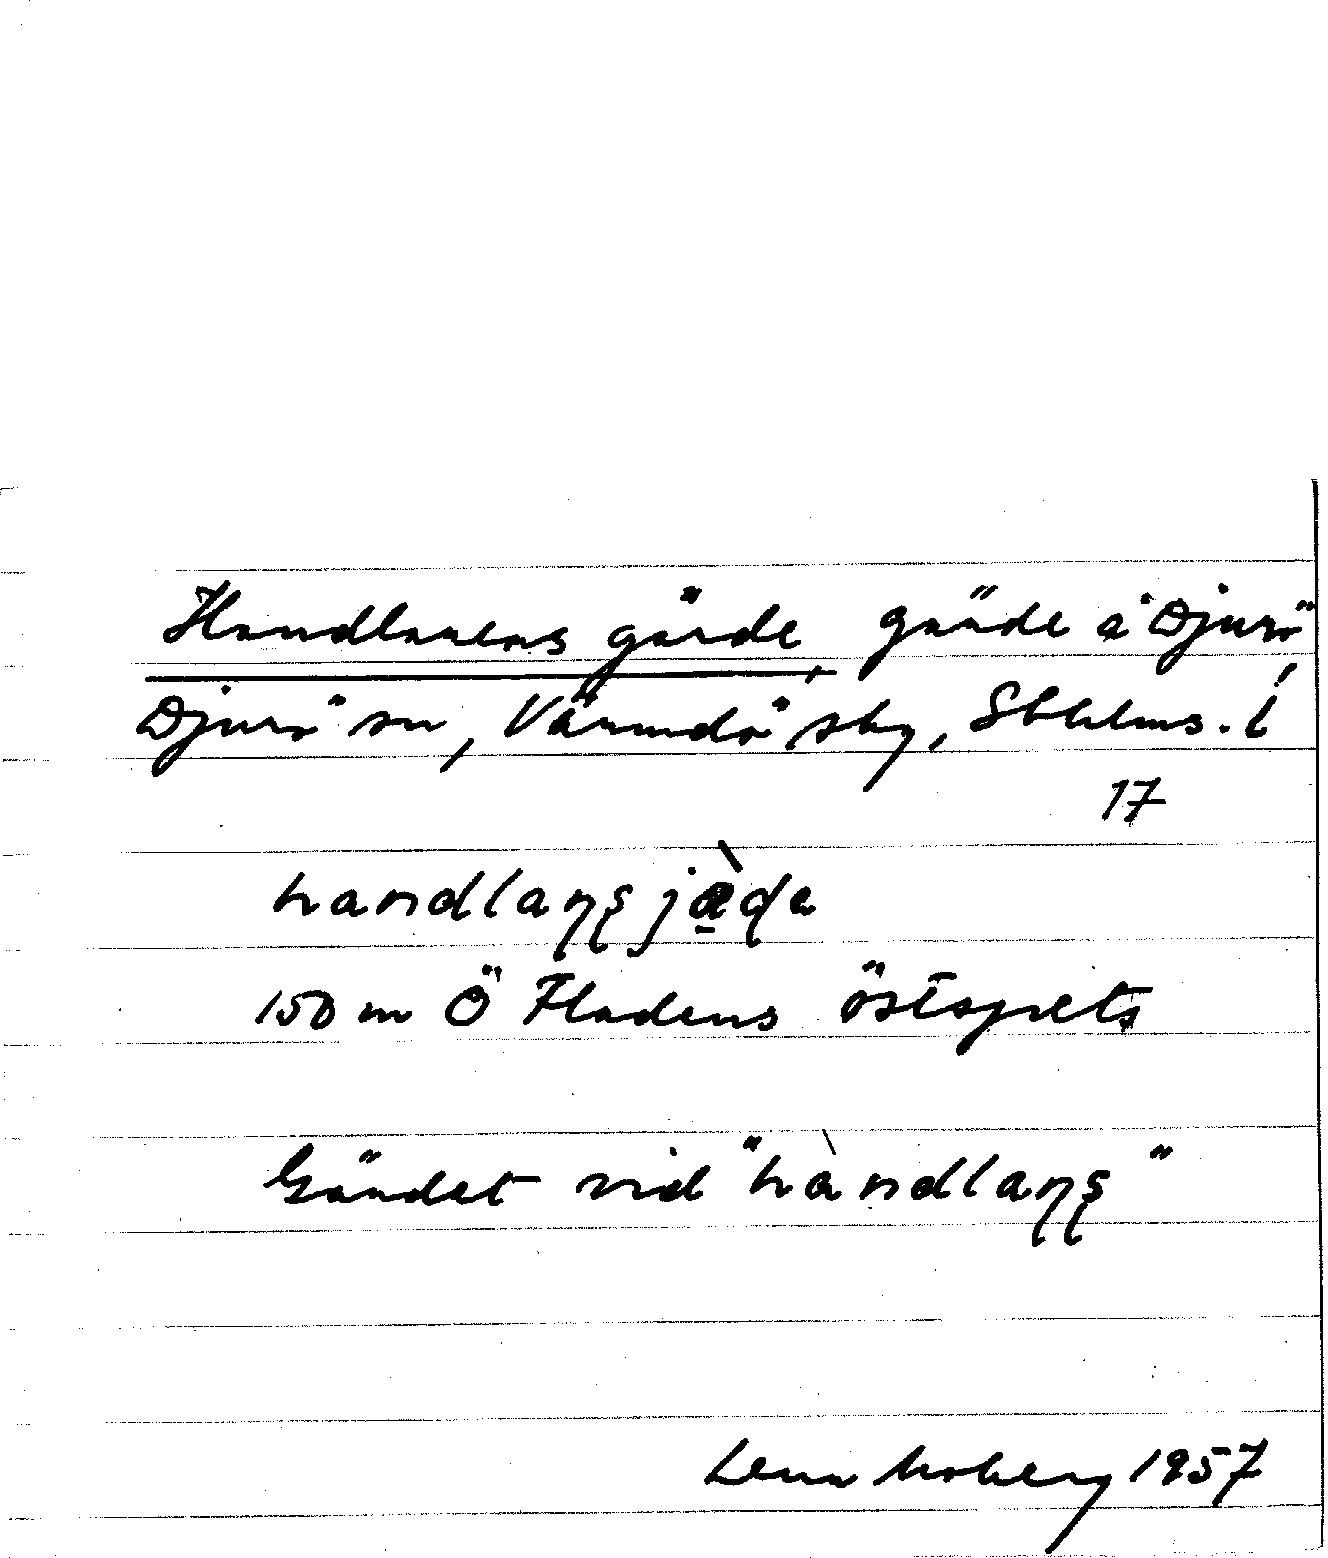 Handlarens gärde, gärde å Djurö,
Djurö sn, Värmdö sky, Sthlms. l
17
handlaɳʂ jæ̀ɖe
150 m Ö Fladens östspets
Gärdet vid "hàndlaɳʂ"
Lena Moberg 1957